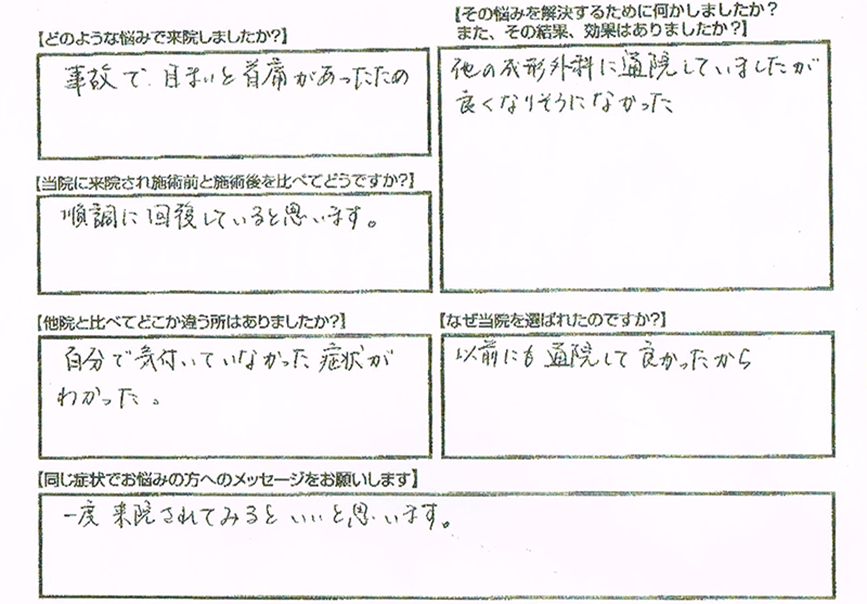 【どのような悩みで来院しましたか?】
事故で、目まいと首痛があったため
【その悩みを解決するために何かしましたか?
また、その結果、効果はありましたか?】
他の成形外科に通院していましたが
良くなりそうになかった
【当院に来院され施術前と施術後を比べてどうですか?】
順調に回復していると思います。
【他院と比べてどこか違う所はありましたか?】
自分で気付いていなかった症状が
わかった。
【なぜ当院を選ばれたのですか?】
以前にも通院して良かったから
【同じ症状でお悩みの方へのメッセージをお願いします】
一度来院されてみるといいと思います。